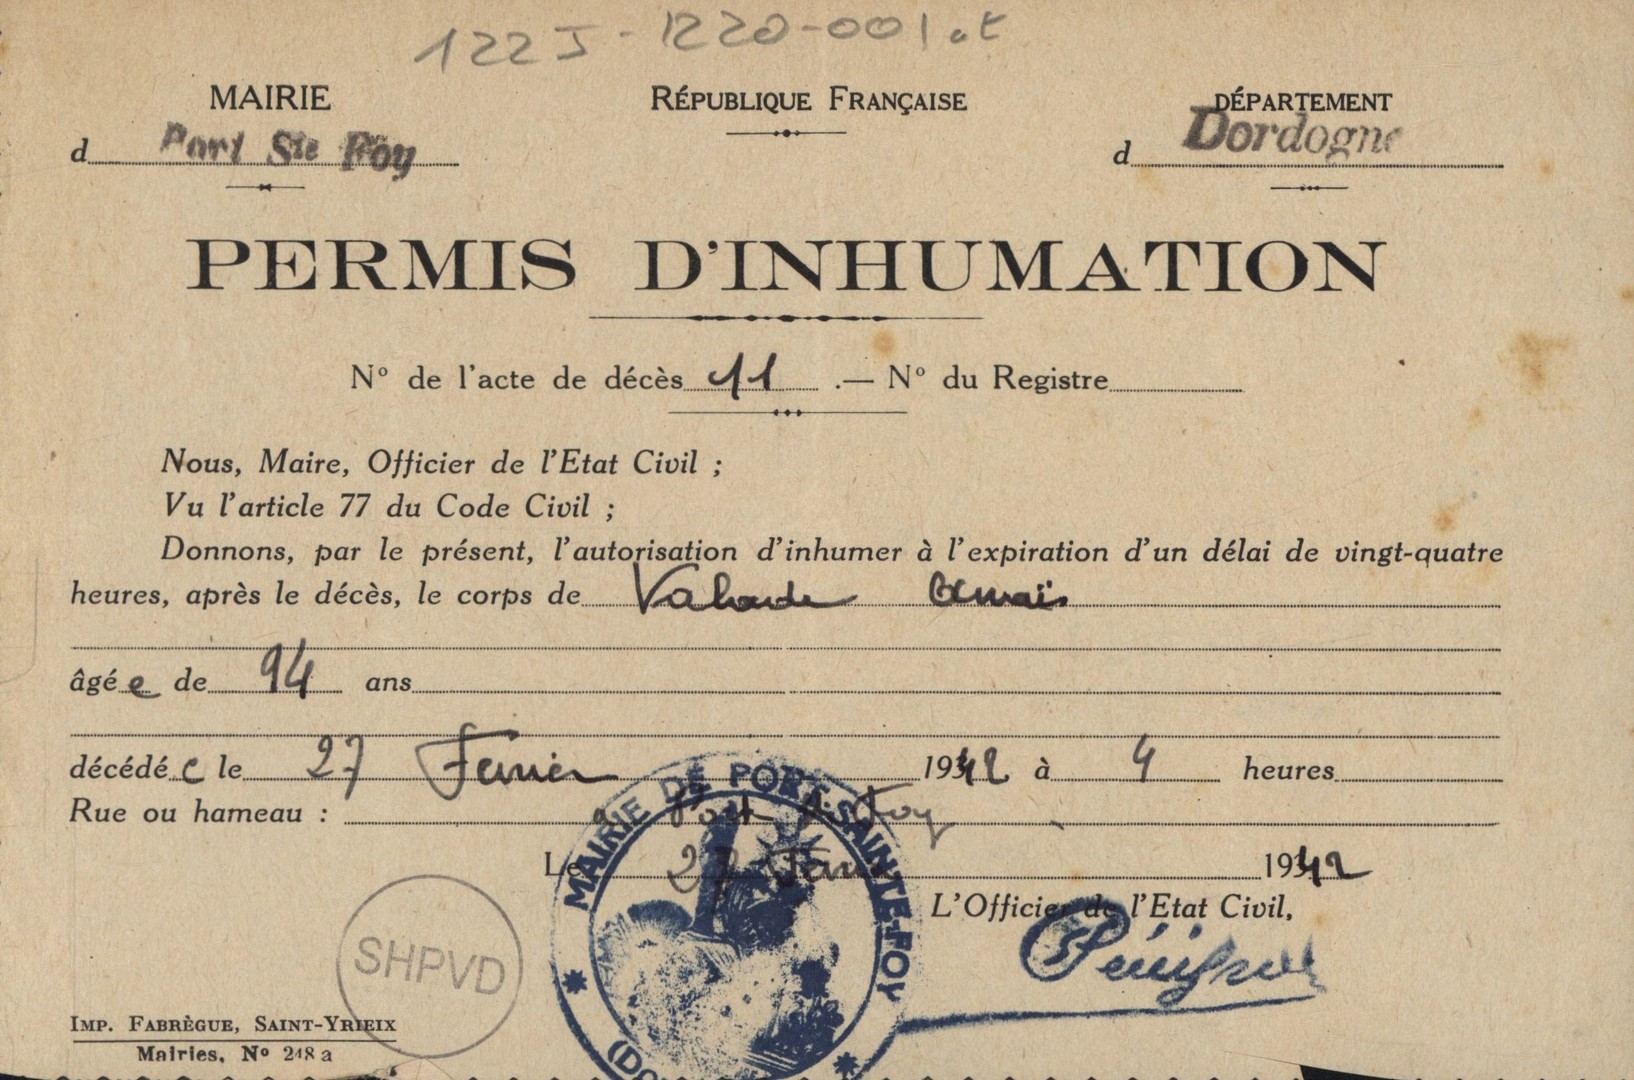 122J-1220-001at
MAIRIE
d Port Ste Foy
RÉPUBLIQUE FRANÇAISE
DÉPARTEMENT
d Dordogne
PERMIS D'INHUMATION
No de l'acte de décès 11 .— No du Registre
Nous, Maire, Officier de l'Etat Civil ;
Vu l'article 77 du Code Civil ;
Donnons, par le présent, l'autorisation d'inhumer à l'expiration d'un délai de vingt-quatre
heures, après le décès, le corps de Valade Anaïs
âgée de 94 ans
décédée le 27 Fevrier 1942 à 4 heures
Rue ou hameau : a Port Ste Foy
Le 27 Fevrier 1942
L'Officier de l'Etat Civil,
MAIRIE DE PORT-SAINTE-FOY
SHPVD
IMP. FABRÈGUE, SAINT-YRIEIX
Mairies, No 248 a